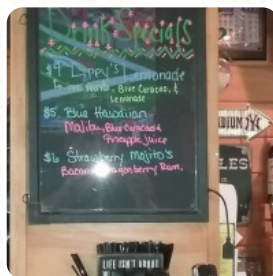 Drink Specials
$9 Lippy's Lemonade
Blue Curacao, &
Lemonade
$5 Blue Hawaiian
Malibu, Blue Curacao &
Pineapple Juice
$6 Strawberry Mojito's
Dragonberry Rum,
LIFE ISN'T ABOUT